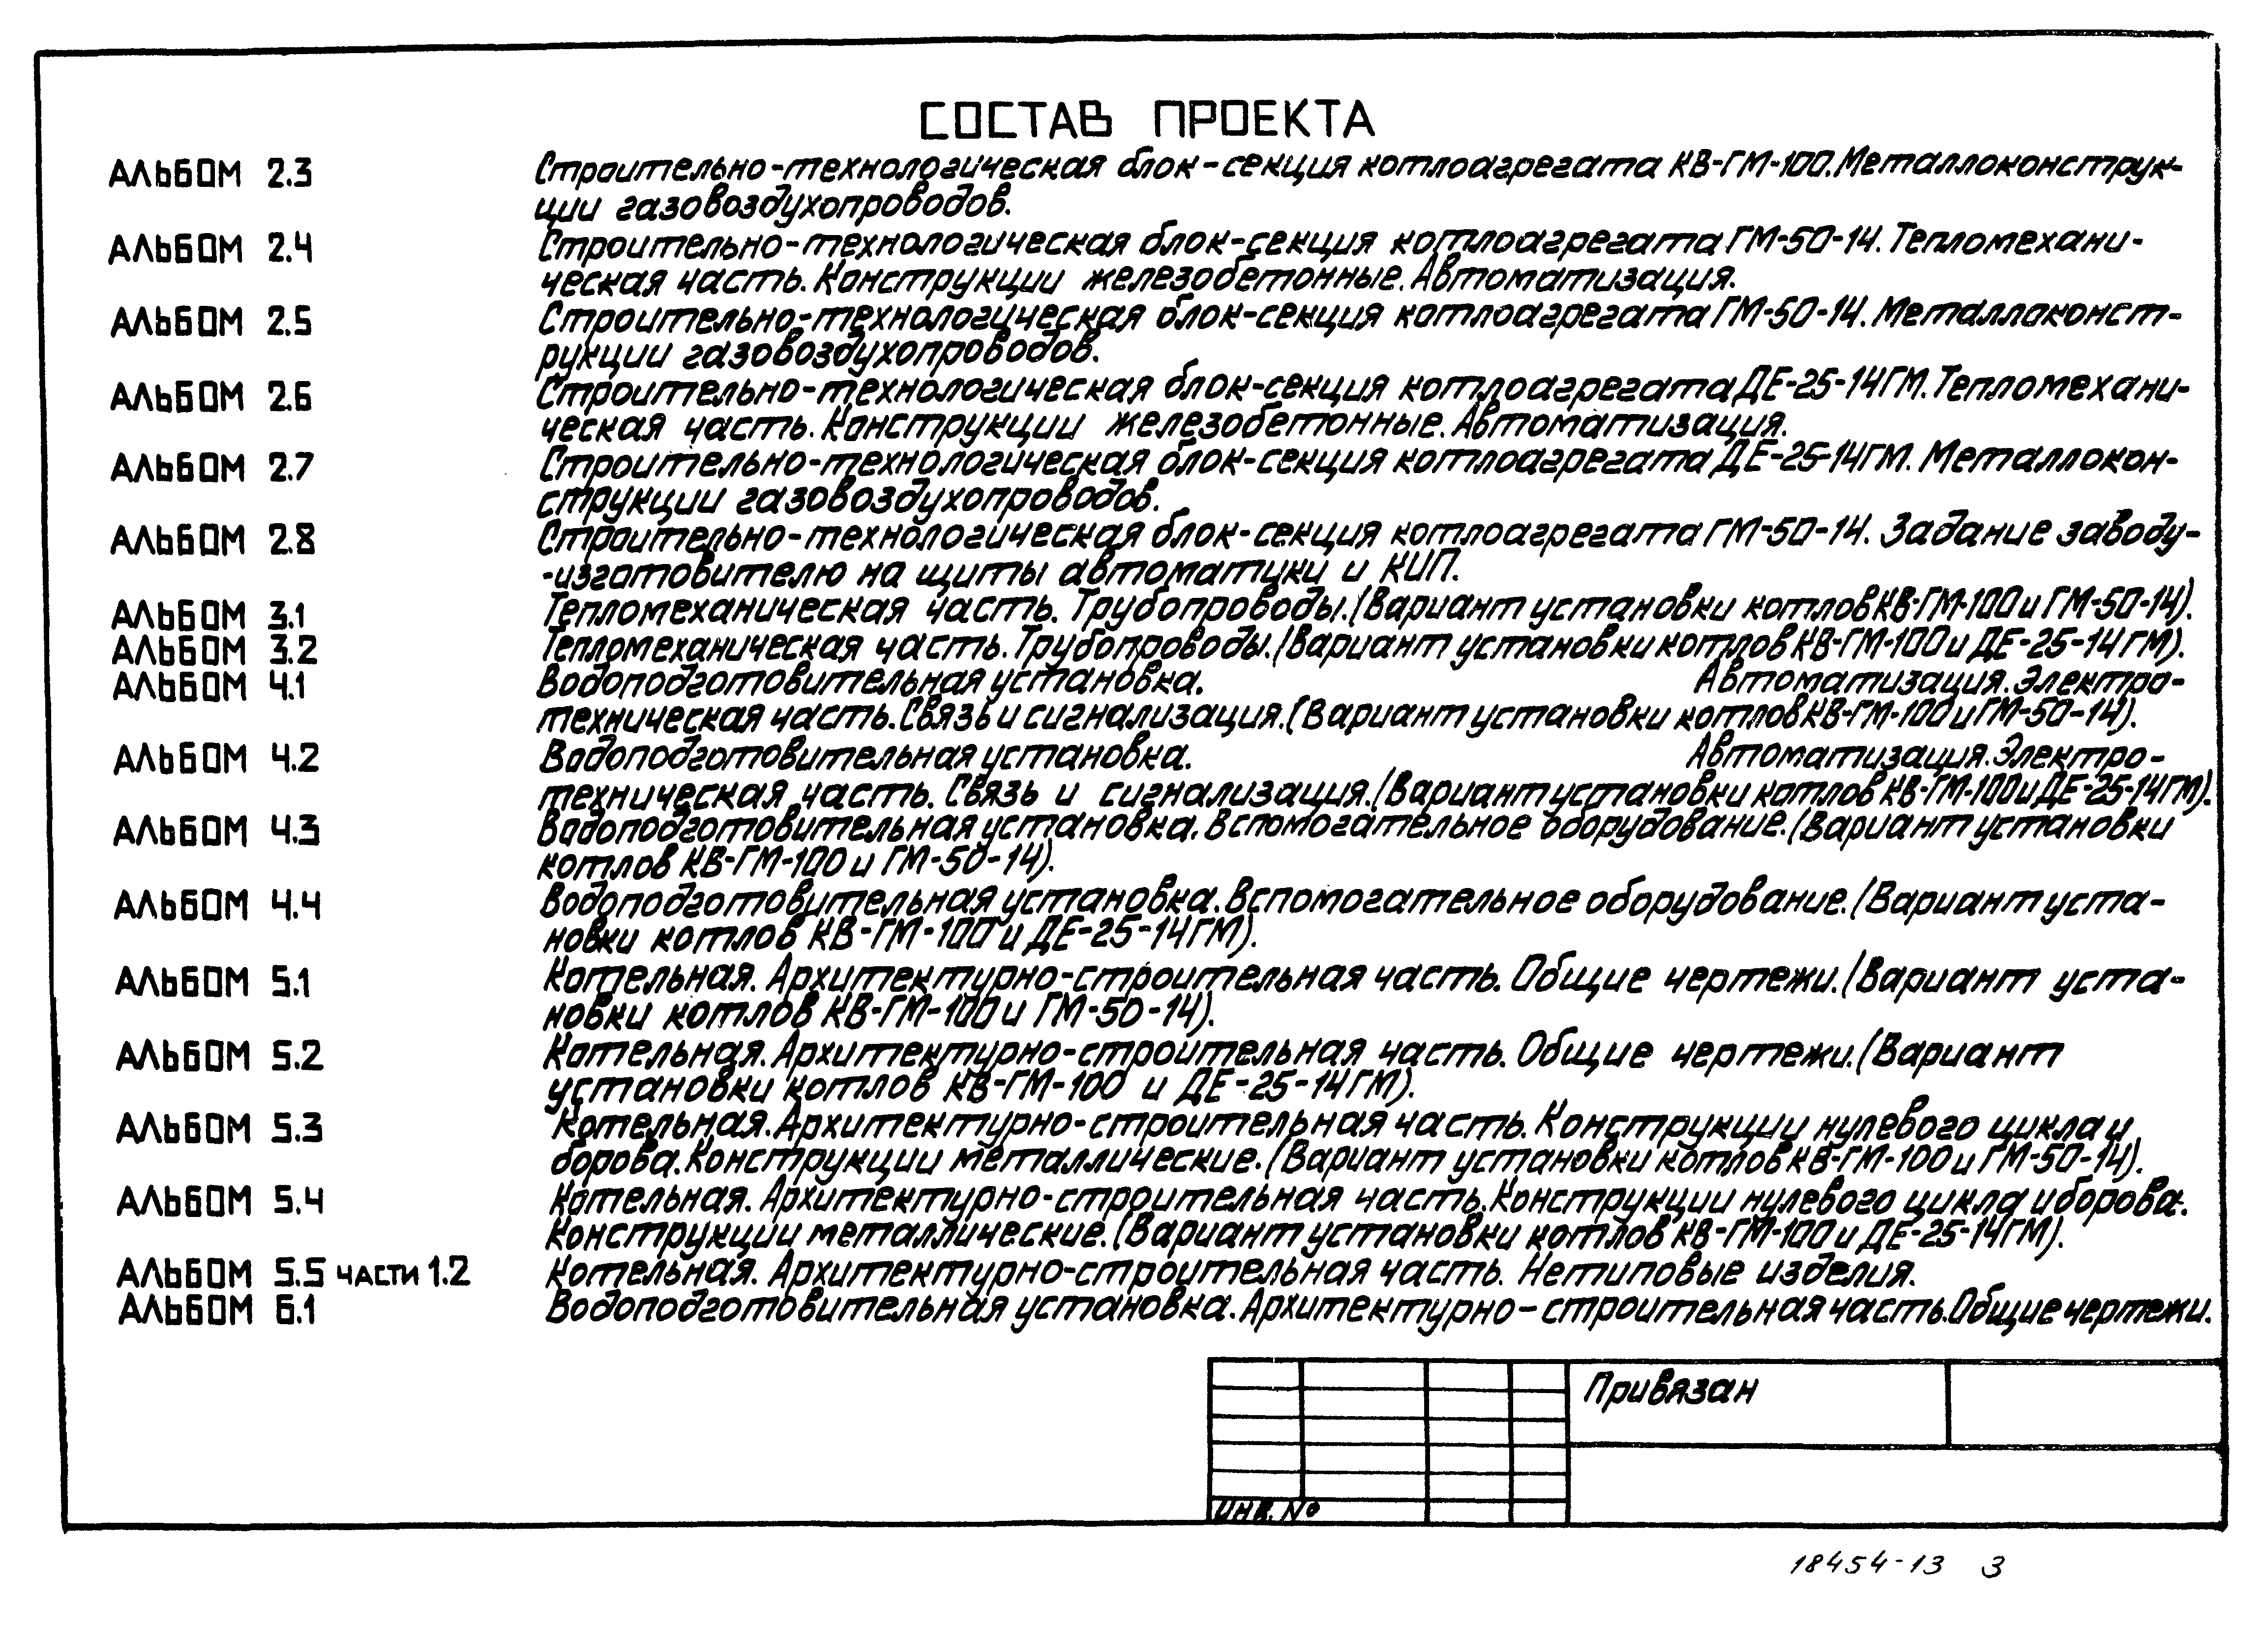 СОСТАВ ПРОЕКТА
АЛЬБОМ 2.3 Строительно-технологическая блок-секция котлоагрегата КВ-ГМ-100. Металлоконструк-
ции газовоздухопроводов.
АЛЬБОМ 2.4 Строительно-технологическая блок-секция котлоагрегата ГМ-50-14. Тепломехани-
ческая часть. Конструкции железобетонные. Автоматизация.
АЛЬБОМ 2.5 Строительно-технологическая блок-секция котлоагрегата ГМ-50-14. Металлоконст-
рукции газовоздухопроводов.
АЛЬБОМ 2.6 Строительно-технологическая блок-секция котлоагрегата ДЕ-25-14ГМ. Тепломехани-
ческая часть. Конструкции железобетонные. Автоматизация.
АЛЬБОМ 2.7 Строительно-технологическая блок-секция котлоагрегата ДЕ-25-14ГМ. Металлокон-
струкции газовоздухопроводов.
АЛЬБОМ 2.8 Строительно-технологическая блок-секция котлоагрегата ГМ-50-14. Задание заводу-
-изготовителю на щиты автоматики и КИП.
АЛЬБОМ 3.1 Тепломеханическая часть. Трубопроводы. (Вариант установки котлов КВ-ГМ-100 и ГМ-50-14).
АЛЬБОМ 3.2 Тепломеханическая часть. Трубопроводы. (Вариант установки котлов КВ-ГМ-100 и ДЕ-25-14ГМ).
АЛЬБОМ 4.1 Водоподготовительная установка. Автоматизация. Электро-
техническая часть. Связь и сигнализация. (Вариант установки котлов КВ-ГМ-100 и ГМ-50-14).
АЛЬБОМ 4.2 Водоподготовительная установка. Автоматизация. Электро-
техническая часть. Связь и сигнализация. (Вариант установки котлов КВ-ГМ-100 и ДЕ-25-14ГМ).
АЛЬБОМ 4.3 Водоподготовительная установка. Вспомогательное оборудование. (Вариант установки
котлов КВ-ГМ-100 и ГМ-50-14).
АЛЬБОМ 4.4 Водоподготовительная установка. Вспомогательное оборудование. (Вариант уста-
новки котлов КВ-ГМ-100 и ДЕ-25-14ГМ).
АЛЬБОМ 5.1 Котельная. Архитектурно-строительная часть. Общие чертежи. (Вариант уста-
новки котлов КВ-ГМ-100 и ГМ-50-14).
АЛЬБОМ 5.2 Котельная. Архитектурно-строительная часть. Общие чертежи. (Вариант
установки котлов КВ-ГМ-100 и ДЕ-25-14ГМ).
АЛЬБОМ 5.3 Котельная. Архитектурно-строительная часть. Конструкции нулевого цикла и
борова. Конструкции металлические. (Вариант установки котлов КВ-ГМ-100 и ГМ-50-14).
АЛЬБОМ 5.4 Котельная. Архитектурно-строительная часть. Конструкции нулевого цикла и борова.
Конструкции металлические. (Вариант установки котлов КВ-ГМ-100 и ДЕ-25-14ГМ).
АЛЬБОМ 5.5 части 1.2 Котельная. Архитектурно-строительная часть. Нетиповые изделия.
АЛЬБОМ 6.1 Водоподготовительная установка. Архитектурно-строительная часть. Общие чертежи.
Привязан
ИНВ. №
18454-13 3